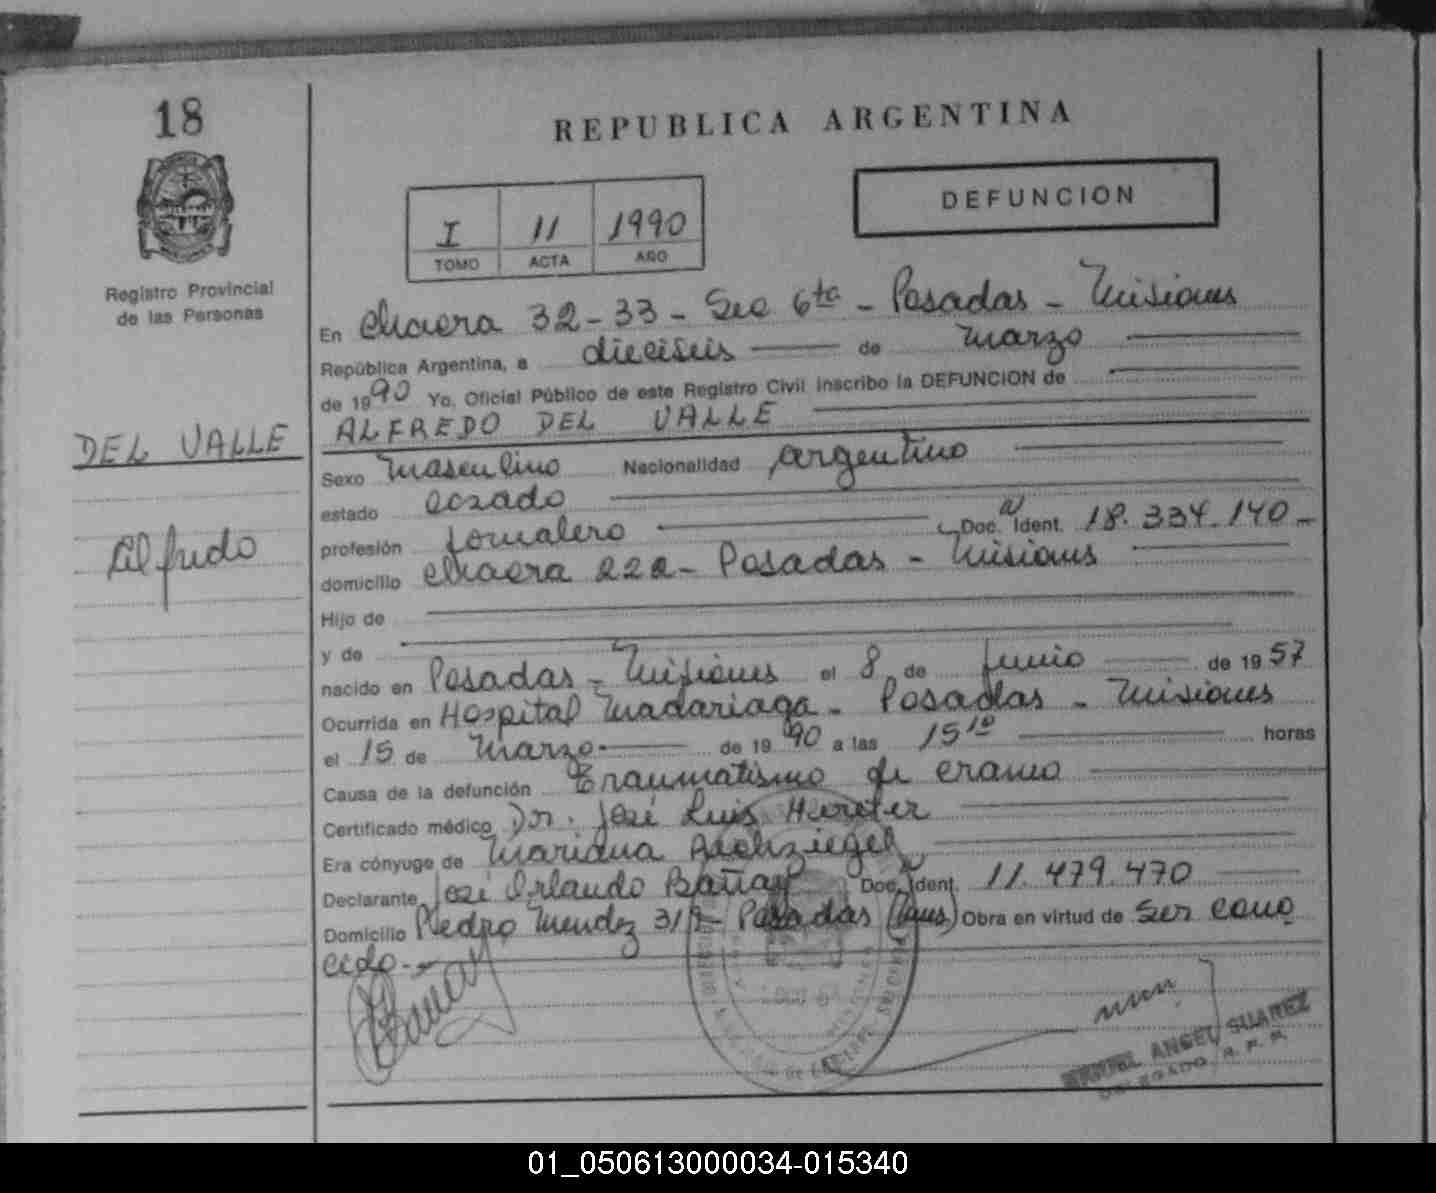 18
Registro Provincial
de las Personas
DEL VALLE
Alfredo
REPUBLICA ARGENTINA
I 11 1990
TOMO ACTA AÑO
DEFUNCION
En Chacra 32-33 - Sec 6ta - Posadas - Misiones
República Argentina, a dieciseis de Marzo
de 1990 Yo, Oficial Público de este Registro Civil inscribo la DEFUNCION de
ALFREDO DEL VALLE
Sexo Masculino Nacionalidad Argentino
estado cosado
profesión Jornalero Doc. Ident. 18.334.140-
domicilio Chacra 222 - Posadas - Misiones
Hijo de
y de
nacido en Posadas - Misiones el 8 de Junio de 1957
Ocurrida en Hospital Madariaga - Posadas - Misiones
el 15 de Marzo.- de 1990 a las 15 10 horas
Causa de la defunción Traumatismo de craneo
Certificado médico Dr. José Luis
Era cónyuge de Mariana
Declarante José Orlando Doc. Ident. 11.479.470
Domicilio Pedro Mendez Posadas Obra en virtud de Ser cono
cido.-
ANGEL SUAREZ
DELEGADO R. P. P.
01_050613000034-015340